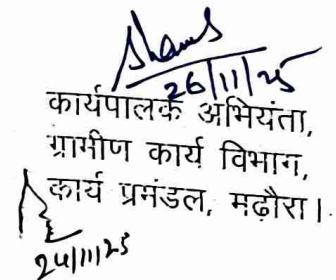 26/11/25
कार्यपालक अभियंता,
ग्रामीण कार्य विभाग,
कार्य प्रमंडल, मढ़ौरा।
24/11/25